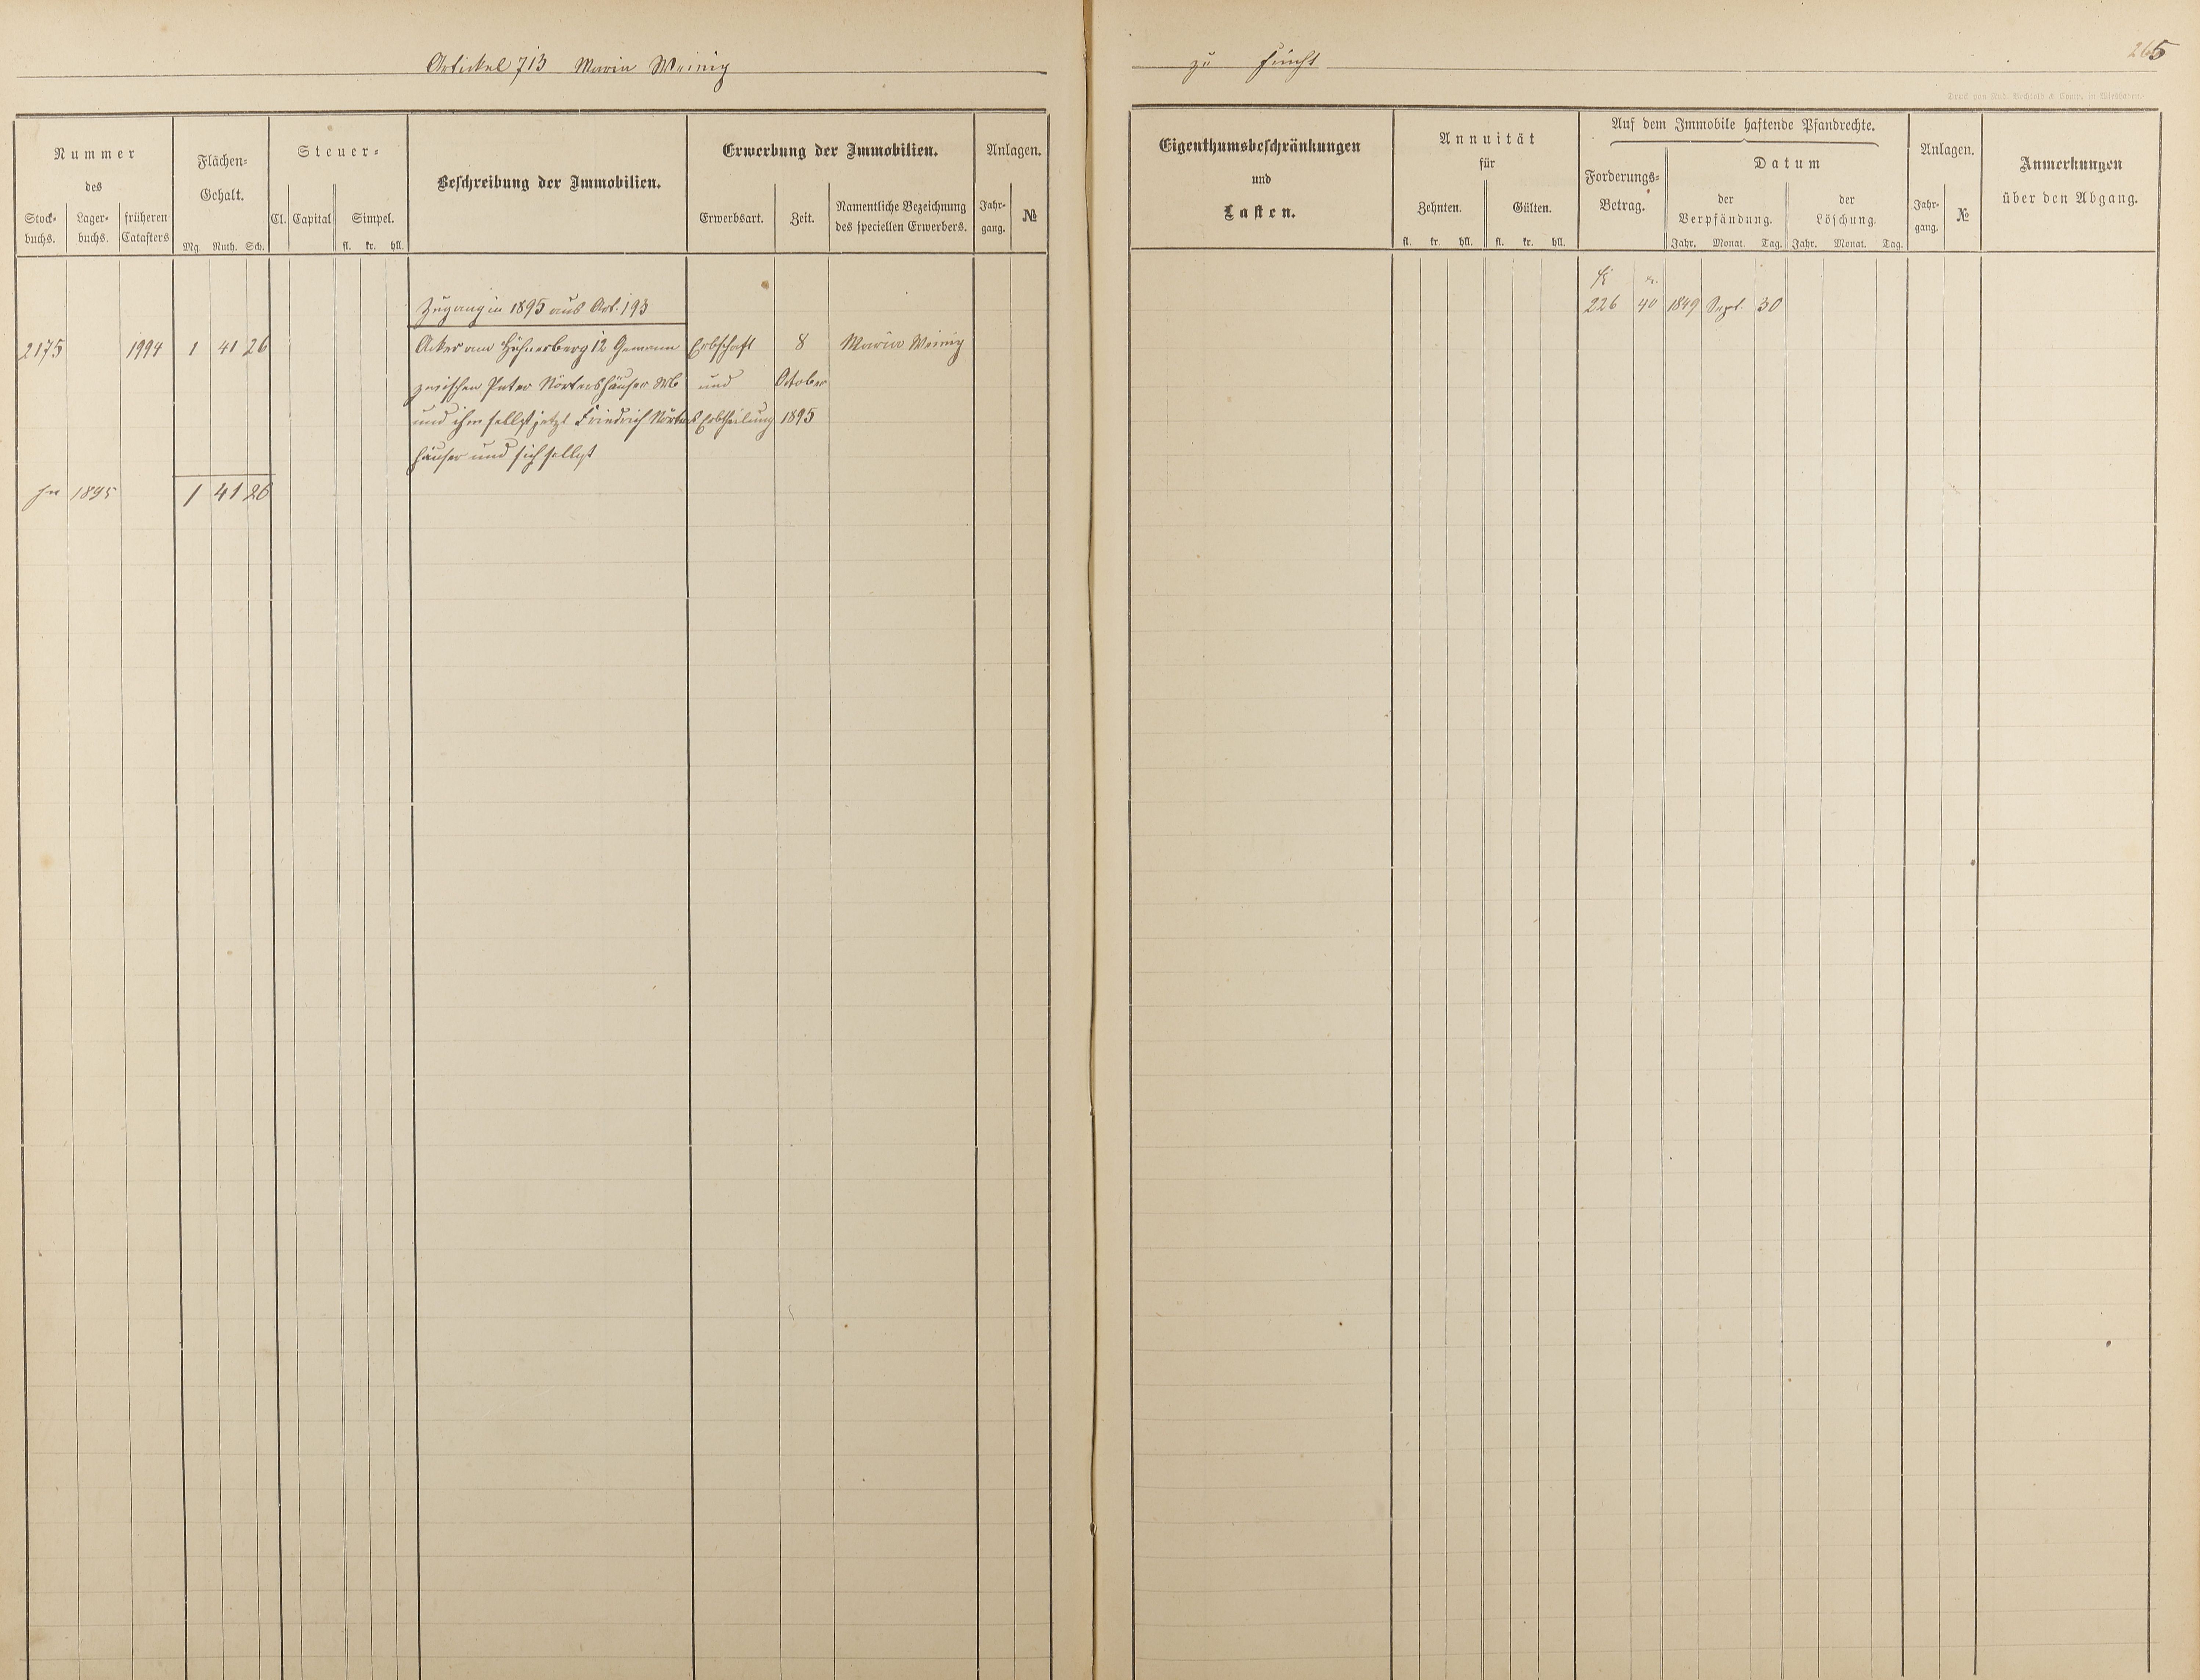 Artickel 713 Maria Weinig
zu
265
Druck von Rud. Bechtold & Comp. in Wiesbaden.
Nummer
des
Stock-
buchs.
Lager-
buchs.
früheren
Catasters
Flächen-
Gehalt.
Mg. Ruth. Sch.
Steuer-
Cl. Capital Simpel.
fl. kr. hll.
Beschreibung der Immobilien.
Erwerbung der Immobilien.
Erwerbsart.
Zeit.
Namentliche Bezeichnung
des speciellen Erwerbers.
Anlagen.
Jahr-
gang.
№
Eigenthumsbeschränkungen
und
Lasten.
Annuität
für
Zehnten. Gülten.
fl. kr. hll. fl. kr. hll.
Auf dem Immobile haftende Pfandrechte.
Forderungs-
Betrag.
Datum
der
Verpfändung.
der
Löschung.
Jahr. Monat. Tag. Jahr. Monat. Tag.
Anlagen.
Jahr-
gang.
№
Anmerkungen
über den Abgang.
Zugang in 1895 aus Art. 193
226 40 1849 Sept. 30
2175 1994 1 41 26 Acker am Hühnerberg 12 Gewann Erbschaft 8 Maria Weinig
zwischen Peter Nörtershäuser und October
und ihm selbst jetzt Friedrich Nörters Erbtheilung 1895
häuser und sich selbst
1895 1 41 26